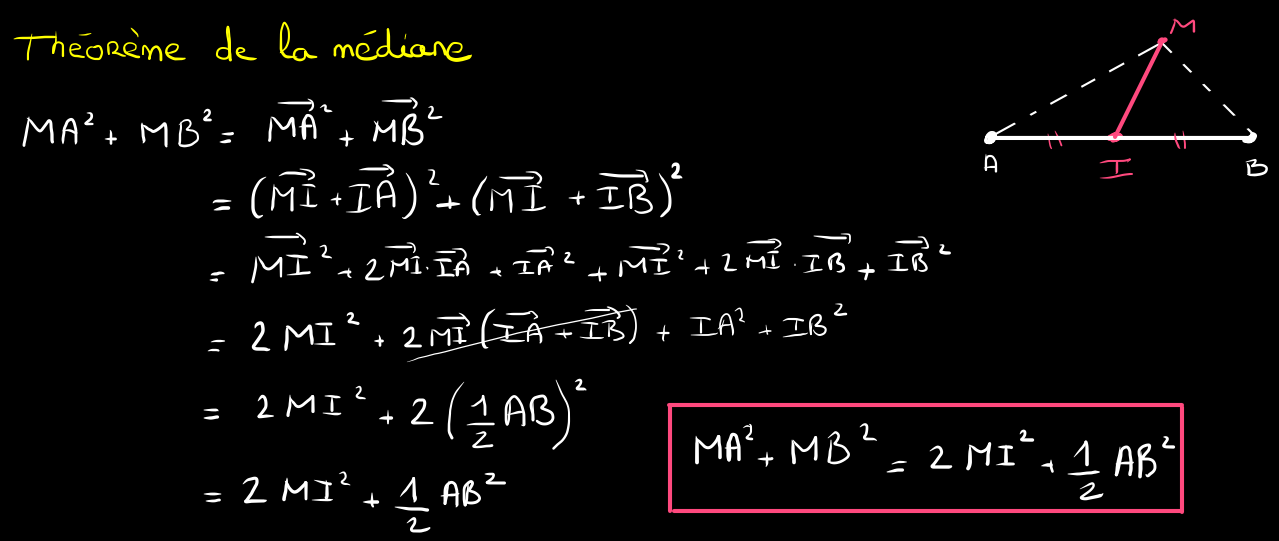 Théorème de la médiane
M
A
I
B
MA² + MB² = \overrightarrow{MA}² + \overrightarrow{MB}²
= (\overrightarrow{MI} + \overrightarrow{IA})² + (\overrightarrow{MI} + \overrightarrow{IB})²
= \overrightarrow{MI}² + 2\overrightarrow{MI}·\overrightarrow{IA} + \overrightarrow{IA}² + \overrightarrow{MI}² + 2\overrightarrow{MI}·\overrightarrow{IB} + \overrightarrow{IB}²
= 2MI² + 2\overrightarrow{MI}(\overrightarrow{IA} + \overrightarrow{IB}) + IA² + IB²
= 2MI² + 2(\frac{1}{2}AB)²
= 2MI² + \frac{1}{2}AB²
MA² + MB² = 2MI² + \frac{1}{2}AB²